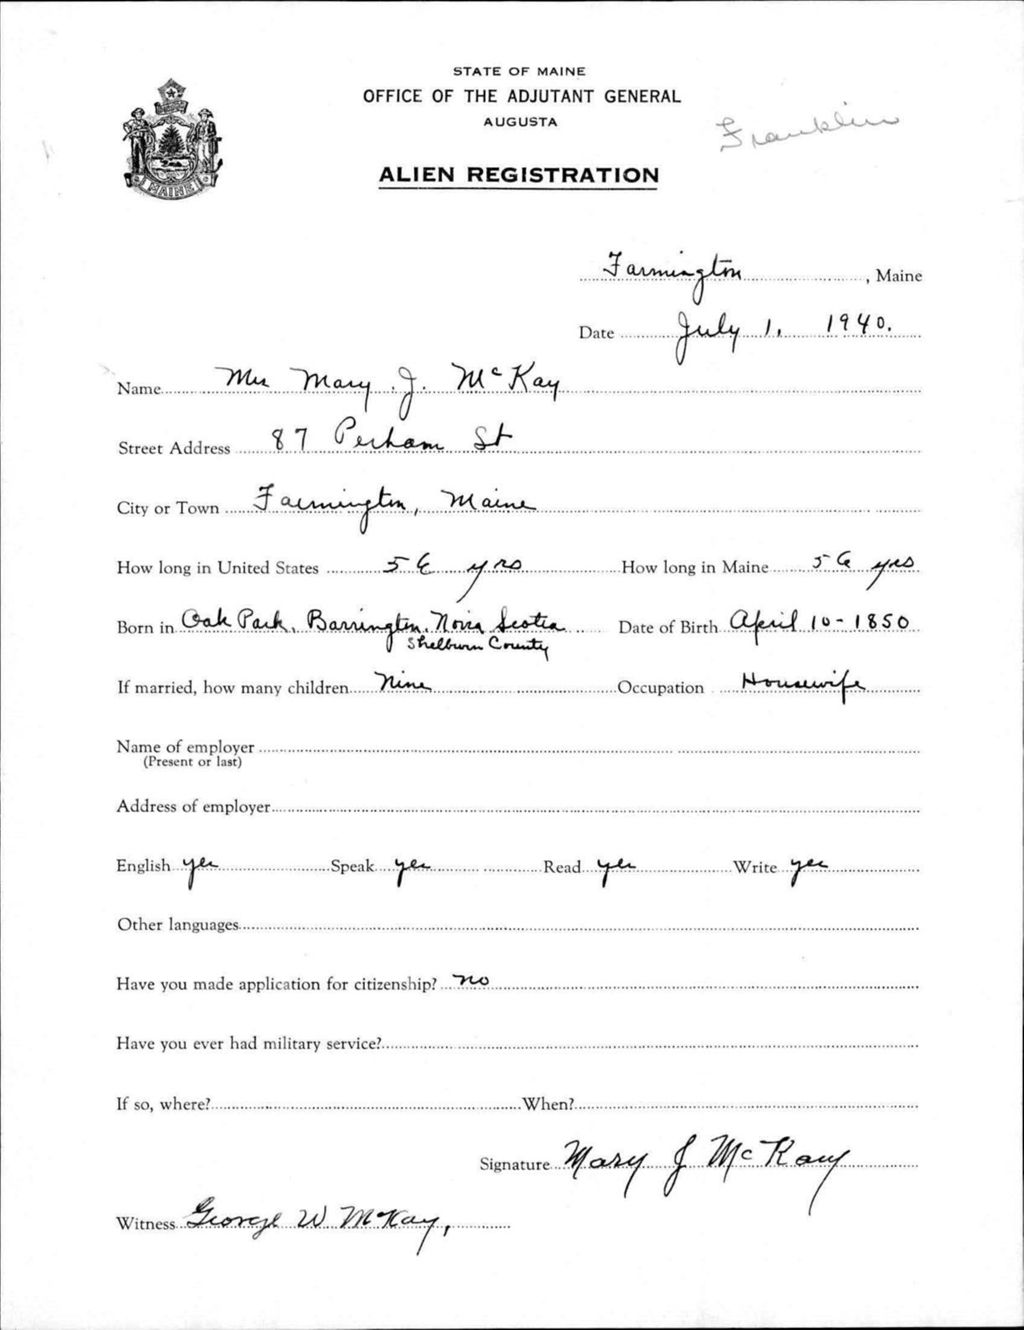 STATE OF MAINE
OFFICE OF THE ADJUTANT GENERAL
AUGUSTA
Franklin
ALIEN REGISTRATION
MAINE
Farmington, Maine
Date July 1, 1940.
Name Mrs Mary J. McKay
Street Address 87 Perham St
City or Town Farmington, Maine
How long in United States yrs How long in Maine yrs
Born in Oak Park, Barrington, Nova Scotia Date of Birth April 10-1850
Shelburn County
If married, how many children Nine Occupation Housewife
Name of employer
(Present or last)
Address of employer
English yes Speak yes Read yes Write yes
Other languages
Have you made application for citizenship? no
Have you ever had military service?
If so, where? When?
Signature Mary J McKay
Witness George W McKay,